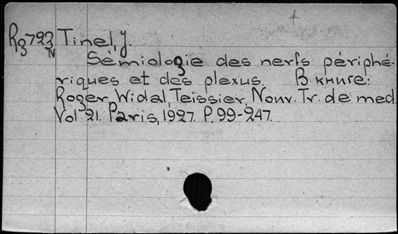 Rg793 Tinel J.
N
Sémiologie des nerfs périphé-
riques et des plexus В книге:
Roger, Widal, Teissier, Nouv. Tr. de med.
Vol 21. Paris, 1927. P. 99-247.